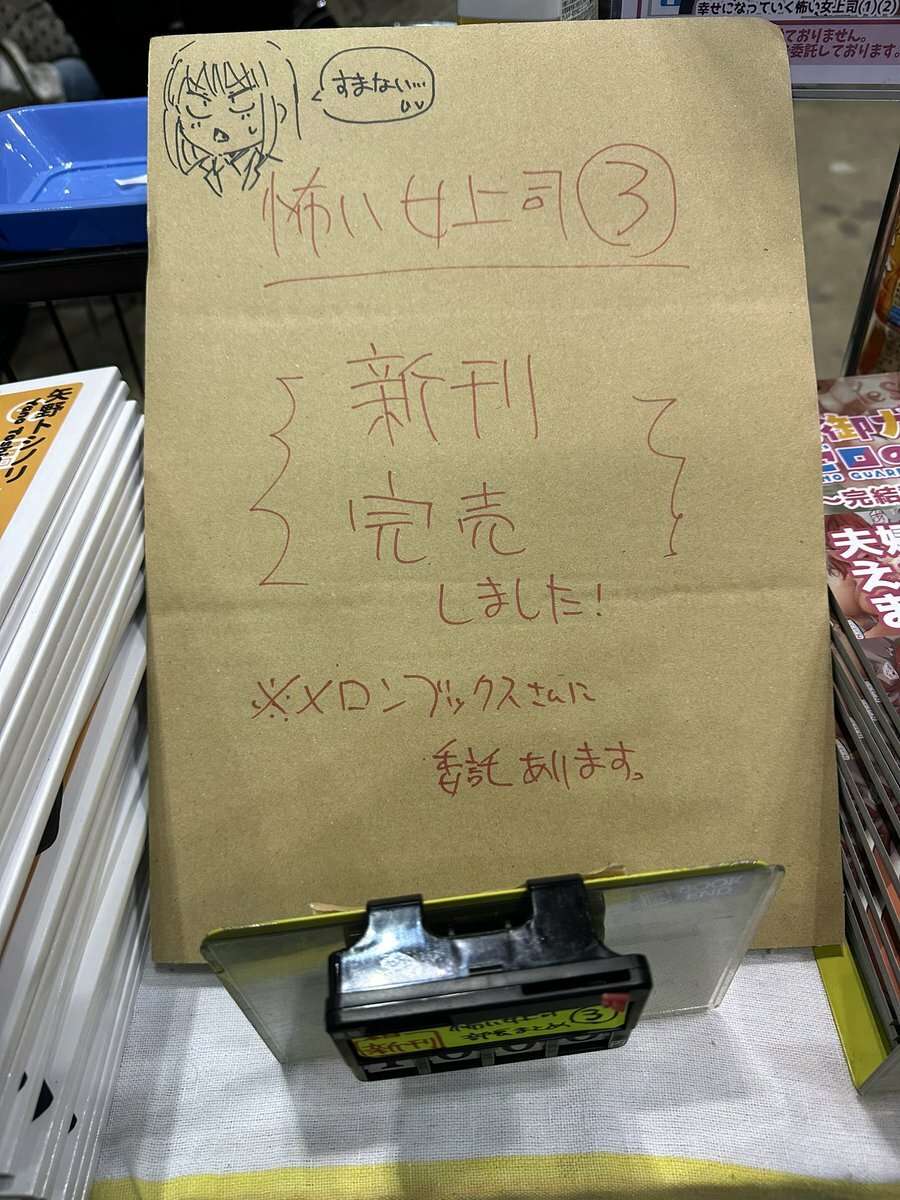 幸せになっていく怖い女上司(1)(2)
ておりません。
委託しております。
すまない…
怖い女上司③
新刊
完売
しました!
※メロンブックスさんに
委託あります。
矢野トシノリ
BOOK
END
怖い女上司
③
新刊
~完結
夫婦